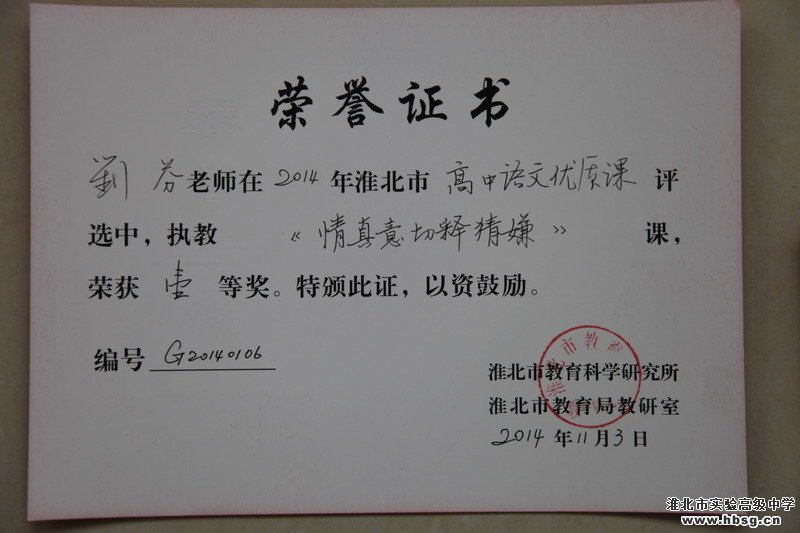 荣誉证书
劉芬老师在 2014 年淮北市 高中语文优质课 评
选中，执教 《情真意切释猜嫌》 课，
荣获 壹 等奖。特颁此证，以资鼓励。
编号 G20140106
淮北市教育科学研究所
淮北市教育局教研室
2014 年 11 月 3 日
淮北市教育
淮北市实验高级中学
www.hbsg.cn